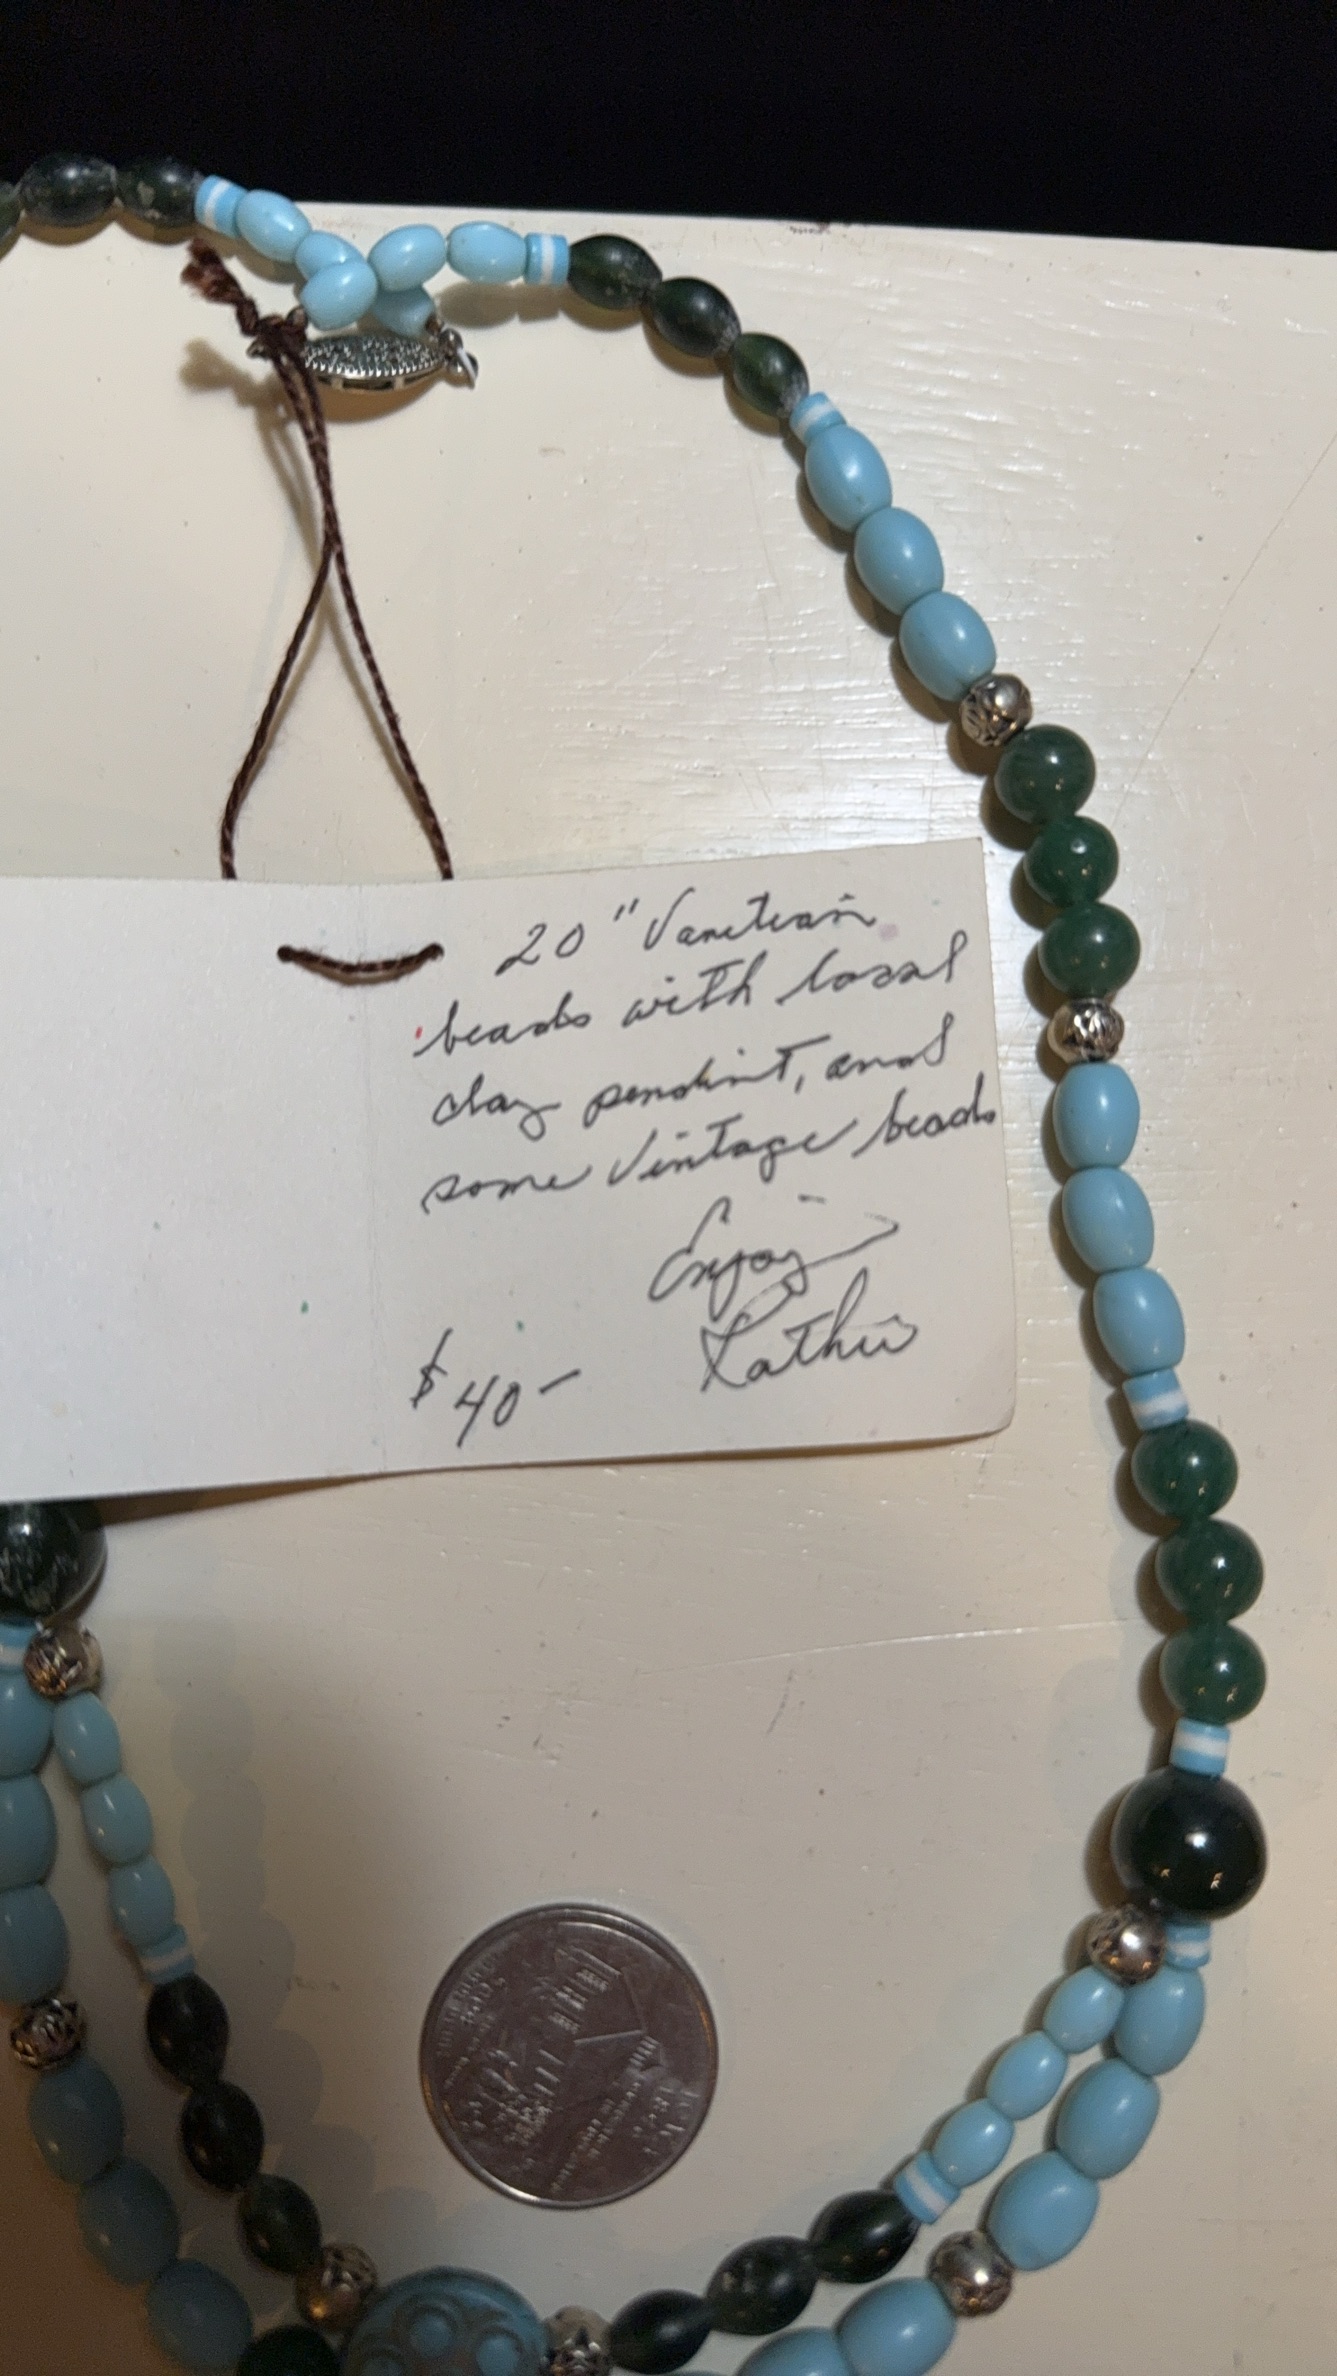 20" Vanetean
beads with local
clay pendint, and
some vintage beads
Enjoy
Kathie
$40-